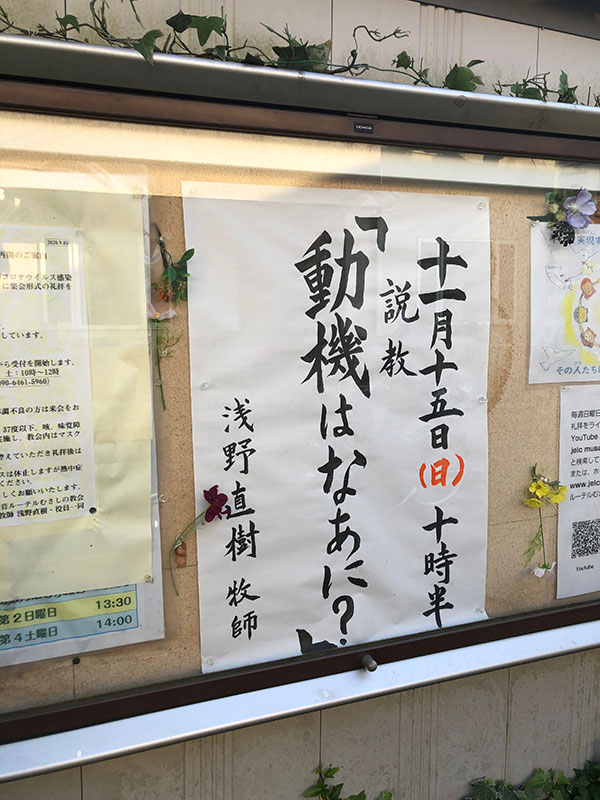 十一月十五日(日)十時半
説教
「動機はなあに?」
浅野直樹 牧師
2020.9.01
コロナウイルス感染
に集会形式の礼拝を
しています。
から受付を開始します。
土:10時~12時
090-6461-5960)
調不良の方は来会をお
37度以下、咳、味覚障
実施し、教会内はマスク
控えていただき礼拝後は
スは休止しますが熱中症
ください。
しくお願いいたします。
音ルーテルむさしの教会
牧師 浅野直樹・役員一同
第2日曜日 13:30
第4土曜日 14:00
実現す
その人たちは
毎週日曜日
礼拝をライ
YouTube
jelc musa
と検索して
または、ホ
www.jelc
ルーテルむさ
Youtube